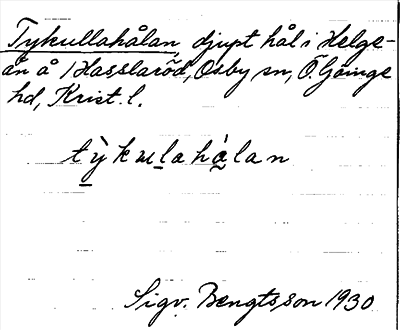 Tykullahålan, djupt hål i Helge-
ån å Hasslaröd, Osby sn, Ö. Göinge
hd, Krist. l.
tỳkulahålan
Sigv. Bengtsson 1930